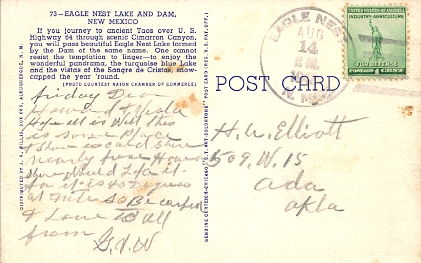 73—EAGLE NEST LAKE AND DAM,
NEW MEXICO
If you journey to ancient Taos over U. S.
Highway 64 through scenic Cimarron Canyon,
you will pass beautiful Eagle Nest Lake formed
by the Dam of the same name. One cannot
resist the temptation to linger—to enjoy the
wonderful panorama, the turquoise blue Lake
and the vistas of the Sangre de Cristos, snow-
capped the year 'round.
(PHOTO COURTESY RATON CHAMBER OF COMMERCE)
Friday
Hope all is well this
is some Place
nearly froze
for it is
at nite so Be careful
& Love to all
from
G.V.W
DISTRIBUTED BY J. R. WILLIS, BOX 665, ALBUQUERQUE, N. M.
GENUINE CURTEICH-CHICAGO "C.T. ART-COLORTONE" POST CARD (REG. U.S. PAT. OFF.)
POST CARD
EAGLE NEST
AUG
14
N. MEX.
UNITED STATES OF AMERICA
INDUSTRY-AGRICULTURE
FOR DEFENSE
1 CENT 1
H. W. Elliott
509. W. 15
Ada
Okla